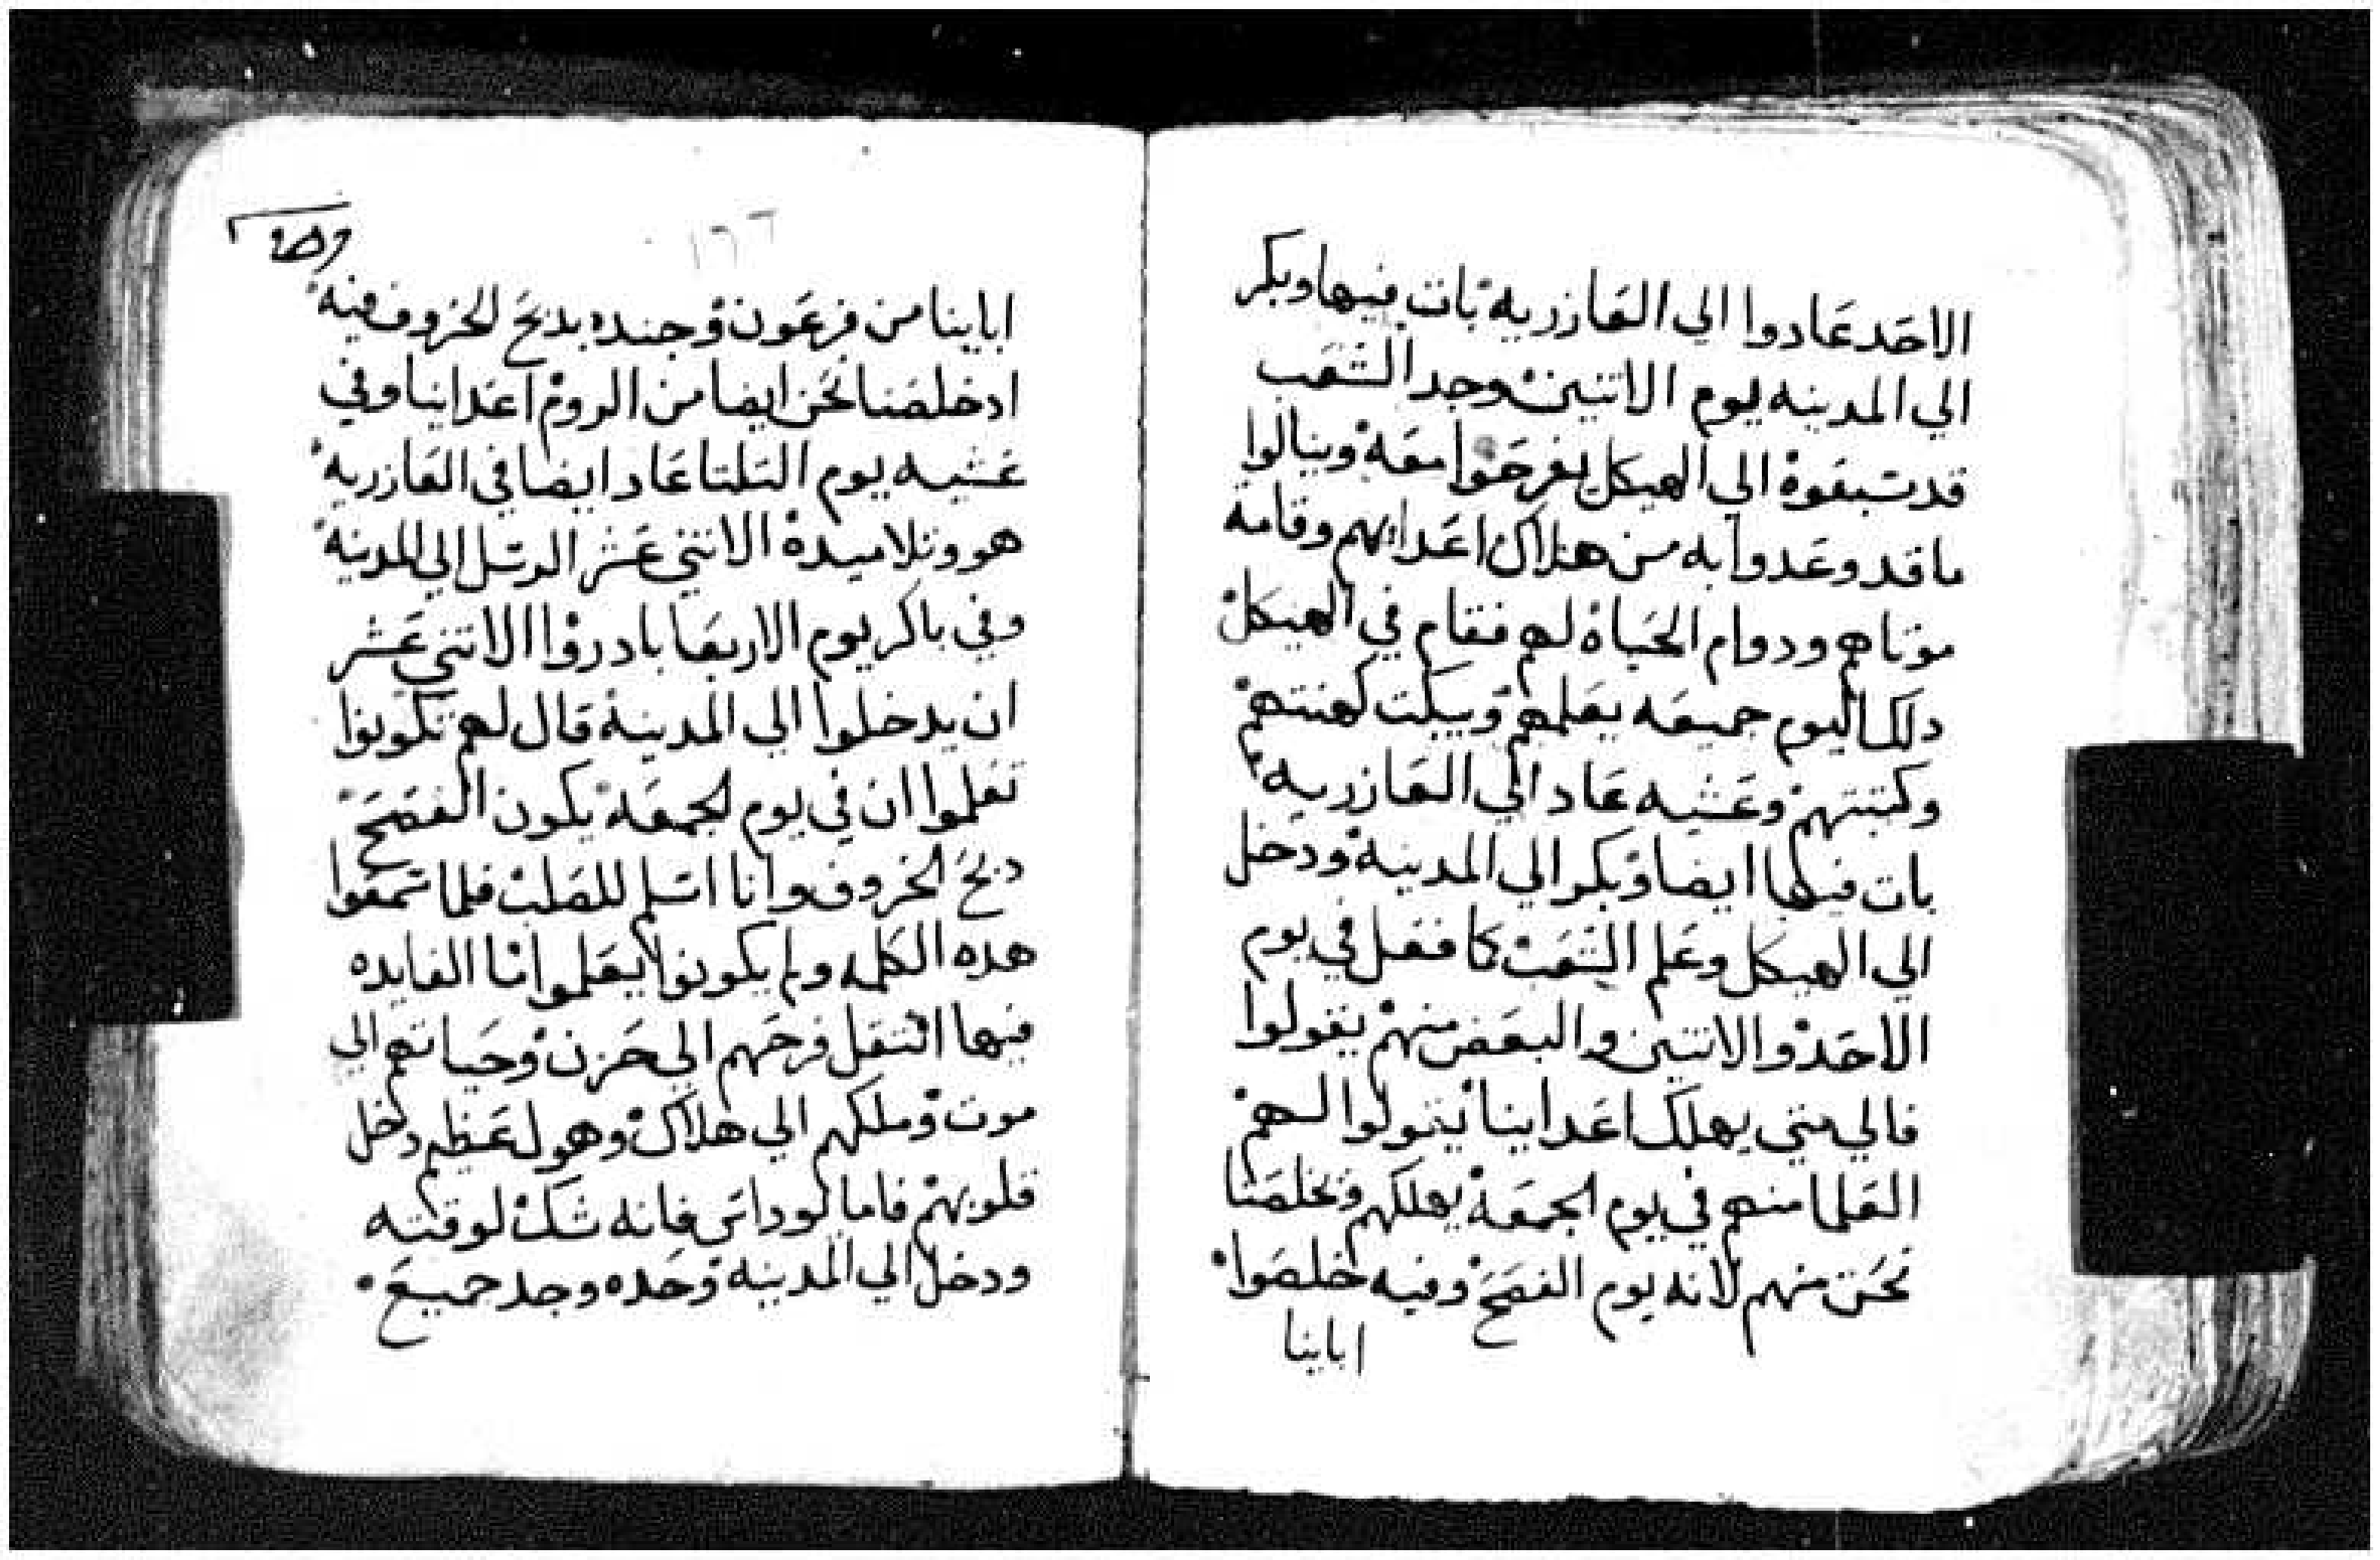 الاحد عادوا الي العازريه بات فيها وبكر
الي المدينه يوم الاتنين وجد الشعب
قد سبقوه الي الهيكل يفرحوا معه وينالوا
ما قد وعدوا به من هلاك اعدايهم وقامة
موتاهم ودوام الحياه لهم فقام في الهيكل
دلك اليوم جميعه يعلمهم ويبكت كهنتهم
وكتبتهم وعشيه عاد الي العازريه
بات فيها ايضا وبكر الي المدينه ودخل
الي الهيكل وعلم الشعب كما فعل في يوم
الاحد والاتنين والبعض منهم يقولوا
فالي متي يهلك اعداينا يقولوا لهم
العلما منهم في يوم الجمعه يهلكهم ونخلصنا
نحن منهم لانه يوم الفصح وفيه خلصوا
اباينا
١٦٦
اباينا من فرعون وجنده بدبح الخروف فيه
ادخلصنا نحن ايضا من الروم اعداينا وفي
عشيه يوم التلتا عاد ايضا في العازريه
هو وتلاميده الاتني عشر الرسل الي المدينه
وفي باكر يوم الاربعا بادروا الاتني عشر
ان يدخلوا الي المدينه قال لهم تكونوا
تعلموا ان في يوم الجمعه يكون الفصح
دبح الخروف وانا اسلم للصلب فلما سمعوا
هده الكلمه ولم يكونوا يعلموا انا الفايده
فيها انتقل فرحهم الي حزن وحياتهم الي
موت وملكهم الي هلاك وهول عظيم دخل
قلوبهم فاما لوداس فانه شك لوقته
ودخل الي المدينه وحده وجد جميع